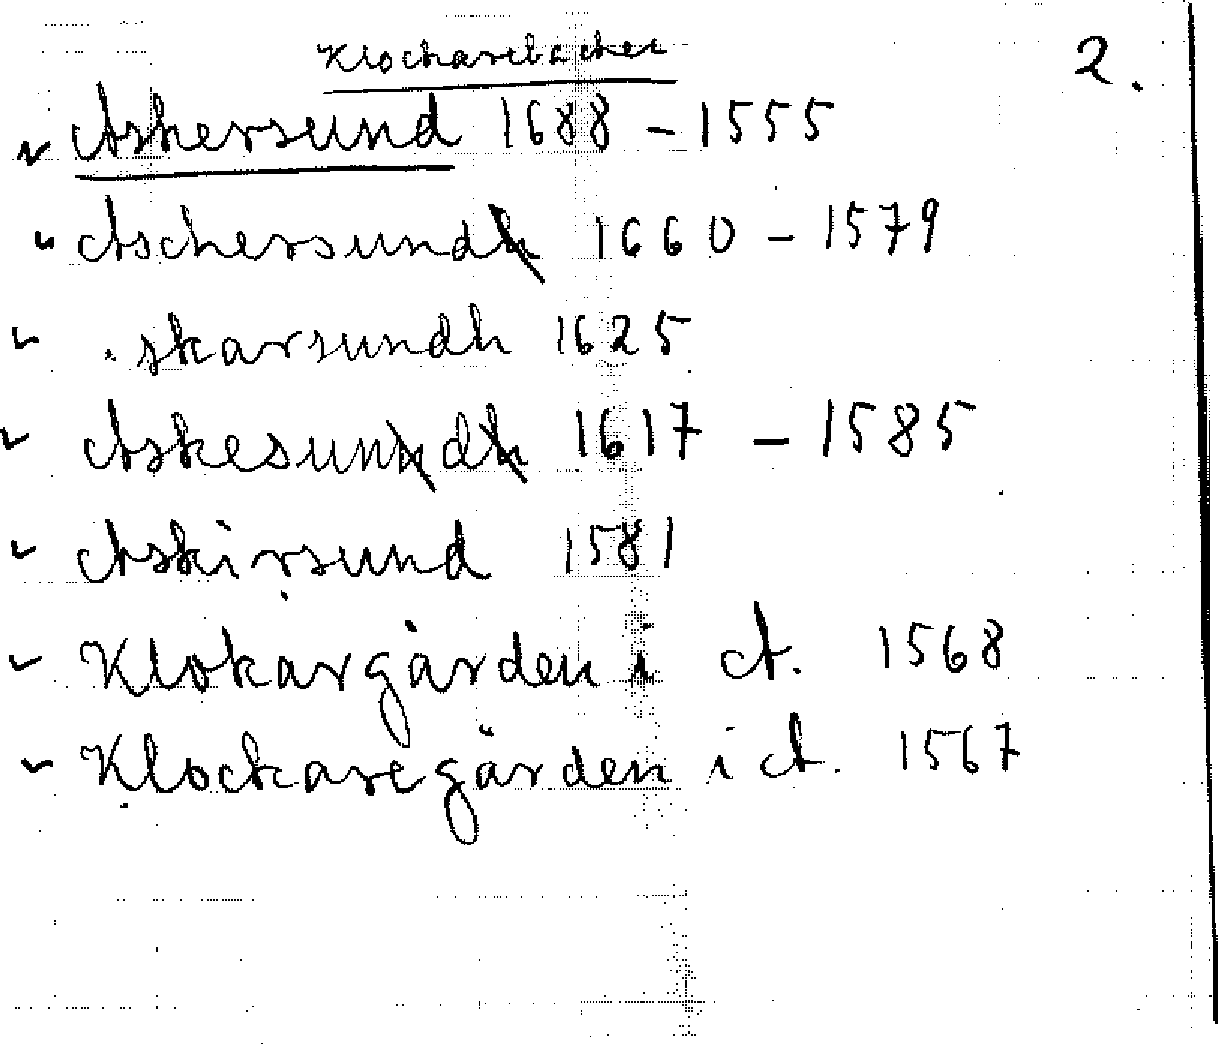 Klockarebacken 2.
Askersund 1688 - 1555
Aschersundh 1660 - 1579
.skarsundh 1625
Askesunndh 1617 - 1585
Askirsund 1581
Klokargården i A. 1568
Klockaregården i A. 1567